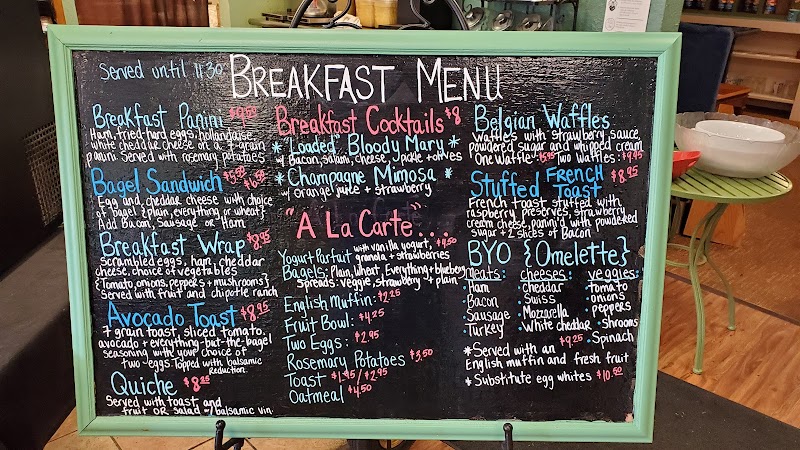 Served until 11:30
BREAKFAST MENU
Breakfast Panini
Ham, fried hard eggs, hollandaise
white cheddar cheese on a 7-grain
panini. Served with rosemary potatoes
Bagel Sandwich
Egg and cheddar cheese with choice
of bagel {plain, everything or wheat}
Add Bacon, Sausage or Ham
Breakfast Wrap $8.95
Scrambled eggs, ham, cheddar
cheese, choice of vegetables
{Tomato, onions, peppers + mushrooms}
Served with fruit and chipotle ranch
Avocado Toast $8.95
7 grain toast, sliced tomato.
avocado + everything-but-the-bagel
seasoning with your choice of
two eggs Topped with balsamic
Reduction.
Quiche
Served with toast and
fruit OR salad w/balsamic vin.
Breakfast Cocktails $8
*"Loaded" Bloody Mary*
w/ Bacon, salami, cheese, pickle + olives
*Champagne Mimosa*
w/ orange juice + strawberry
"A La Carte"...
Yogurt Parfait with vanilla yogurt, $4.50
granola + strawberries
Bagels: Plain, Wheat, Everything + blueberry
Spreads: veggie, strawberry + plain
English Muffin: $2.25
Fruit Bowl: $4.25
Two Eggs: $2.95
Rosemary Potatoes $3.50
Toast $1.95/$2.95
Oatmeal $4.50
Belgian Waffles
Waffles with strawberry sauce,
powdered sugar and whipped cream
One Waffle: $5.95 Two Waffles: $9.95
Stuffed FRENCH TOAST $8.95
French toast stuffed with
raspberry preserves, strawberry
cream cheese, panini'd with powdered
sugar + 2 slices of Bacon
BYO {Omelette}
meats: cheeses: veggies:
Ham cheddar tomato
Bacon Swiss onions
Sausage Mozzarella peppers
Turkey White cheddar shrooms
$9.25 Spinach
*Served with an
English muffin and fresh fruit
*Substitute egg whites $10.50